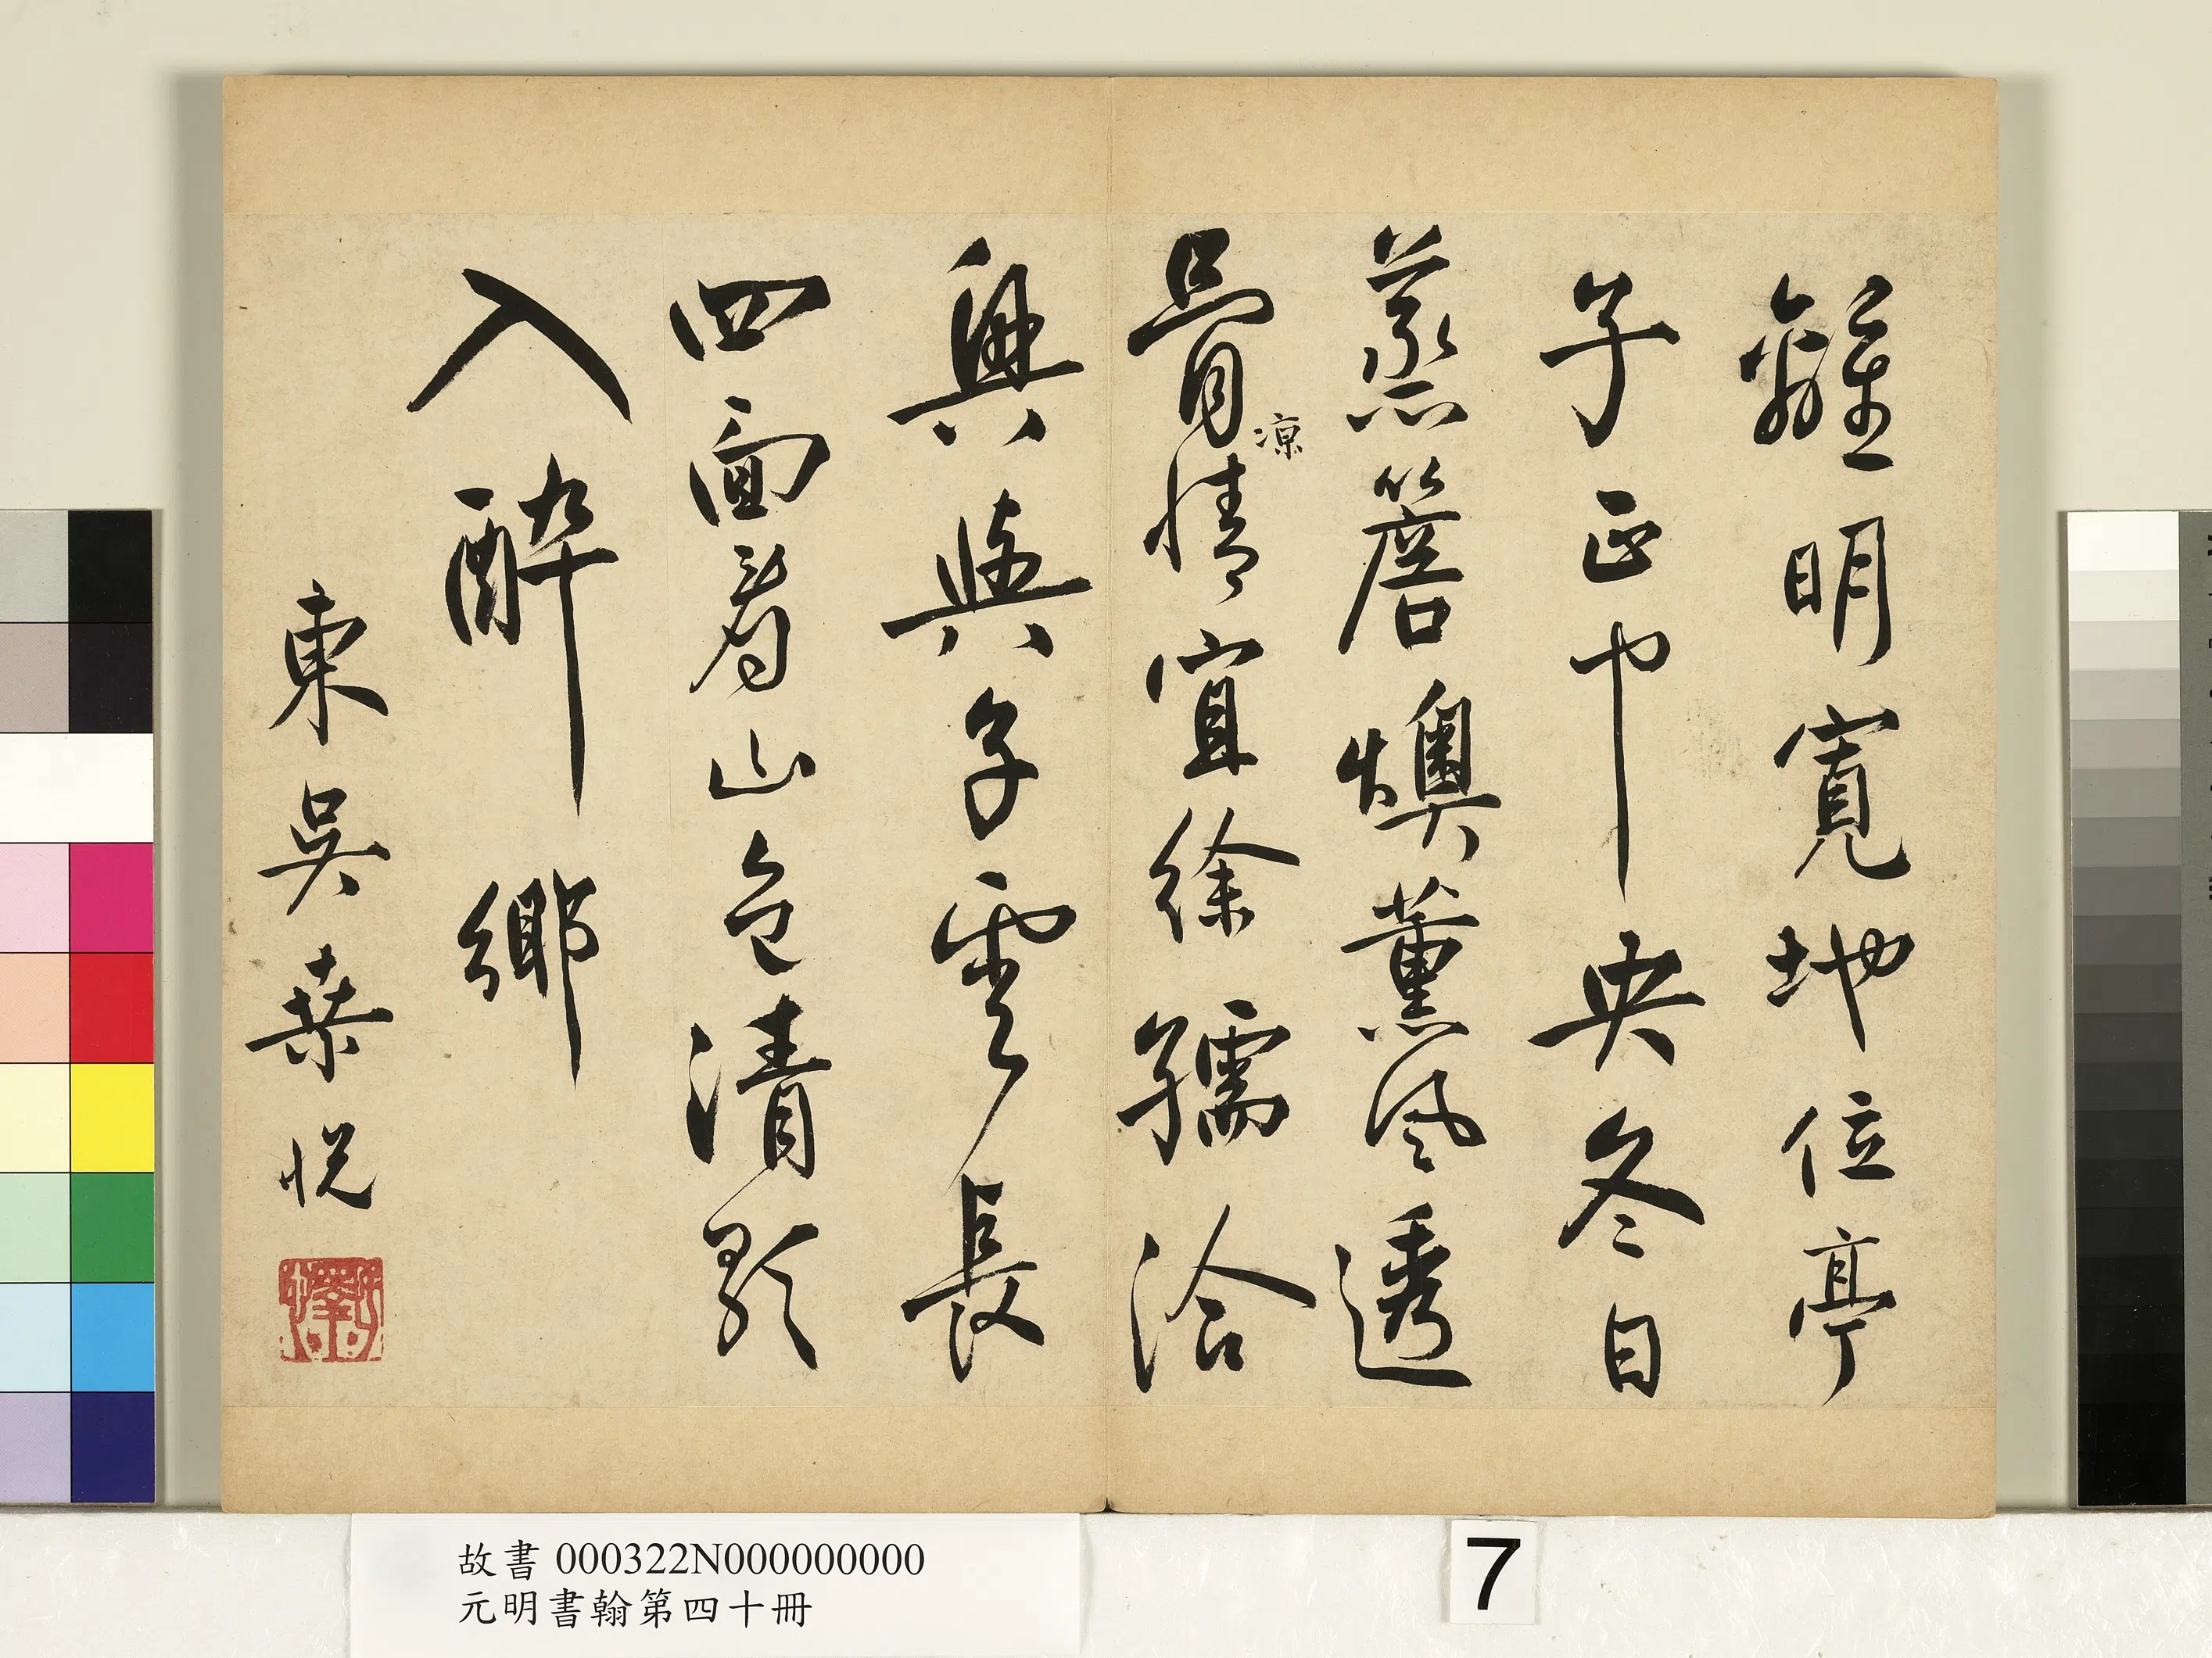 離明寬地位亭
子正中央冬日
蒸簷燠薰風透
骨涼情宜徐孺洽
興與子雲長
四面看山色清歌
入醉鄉
東吳桑悅
故書 000322N000000000
元明書翰第四十冊
7